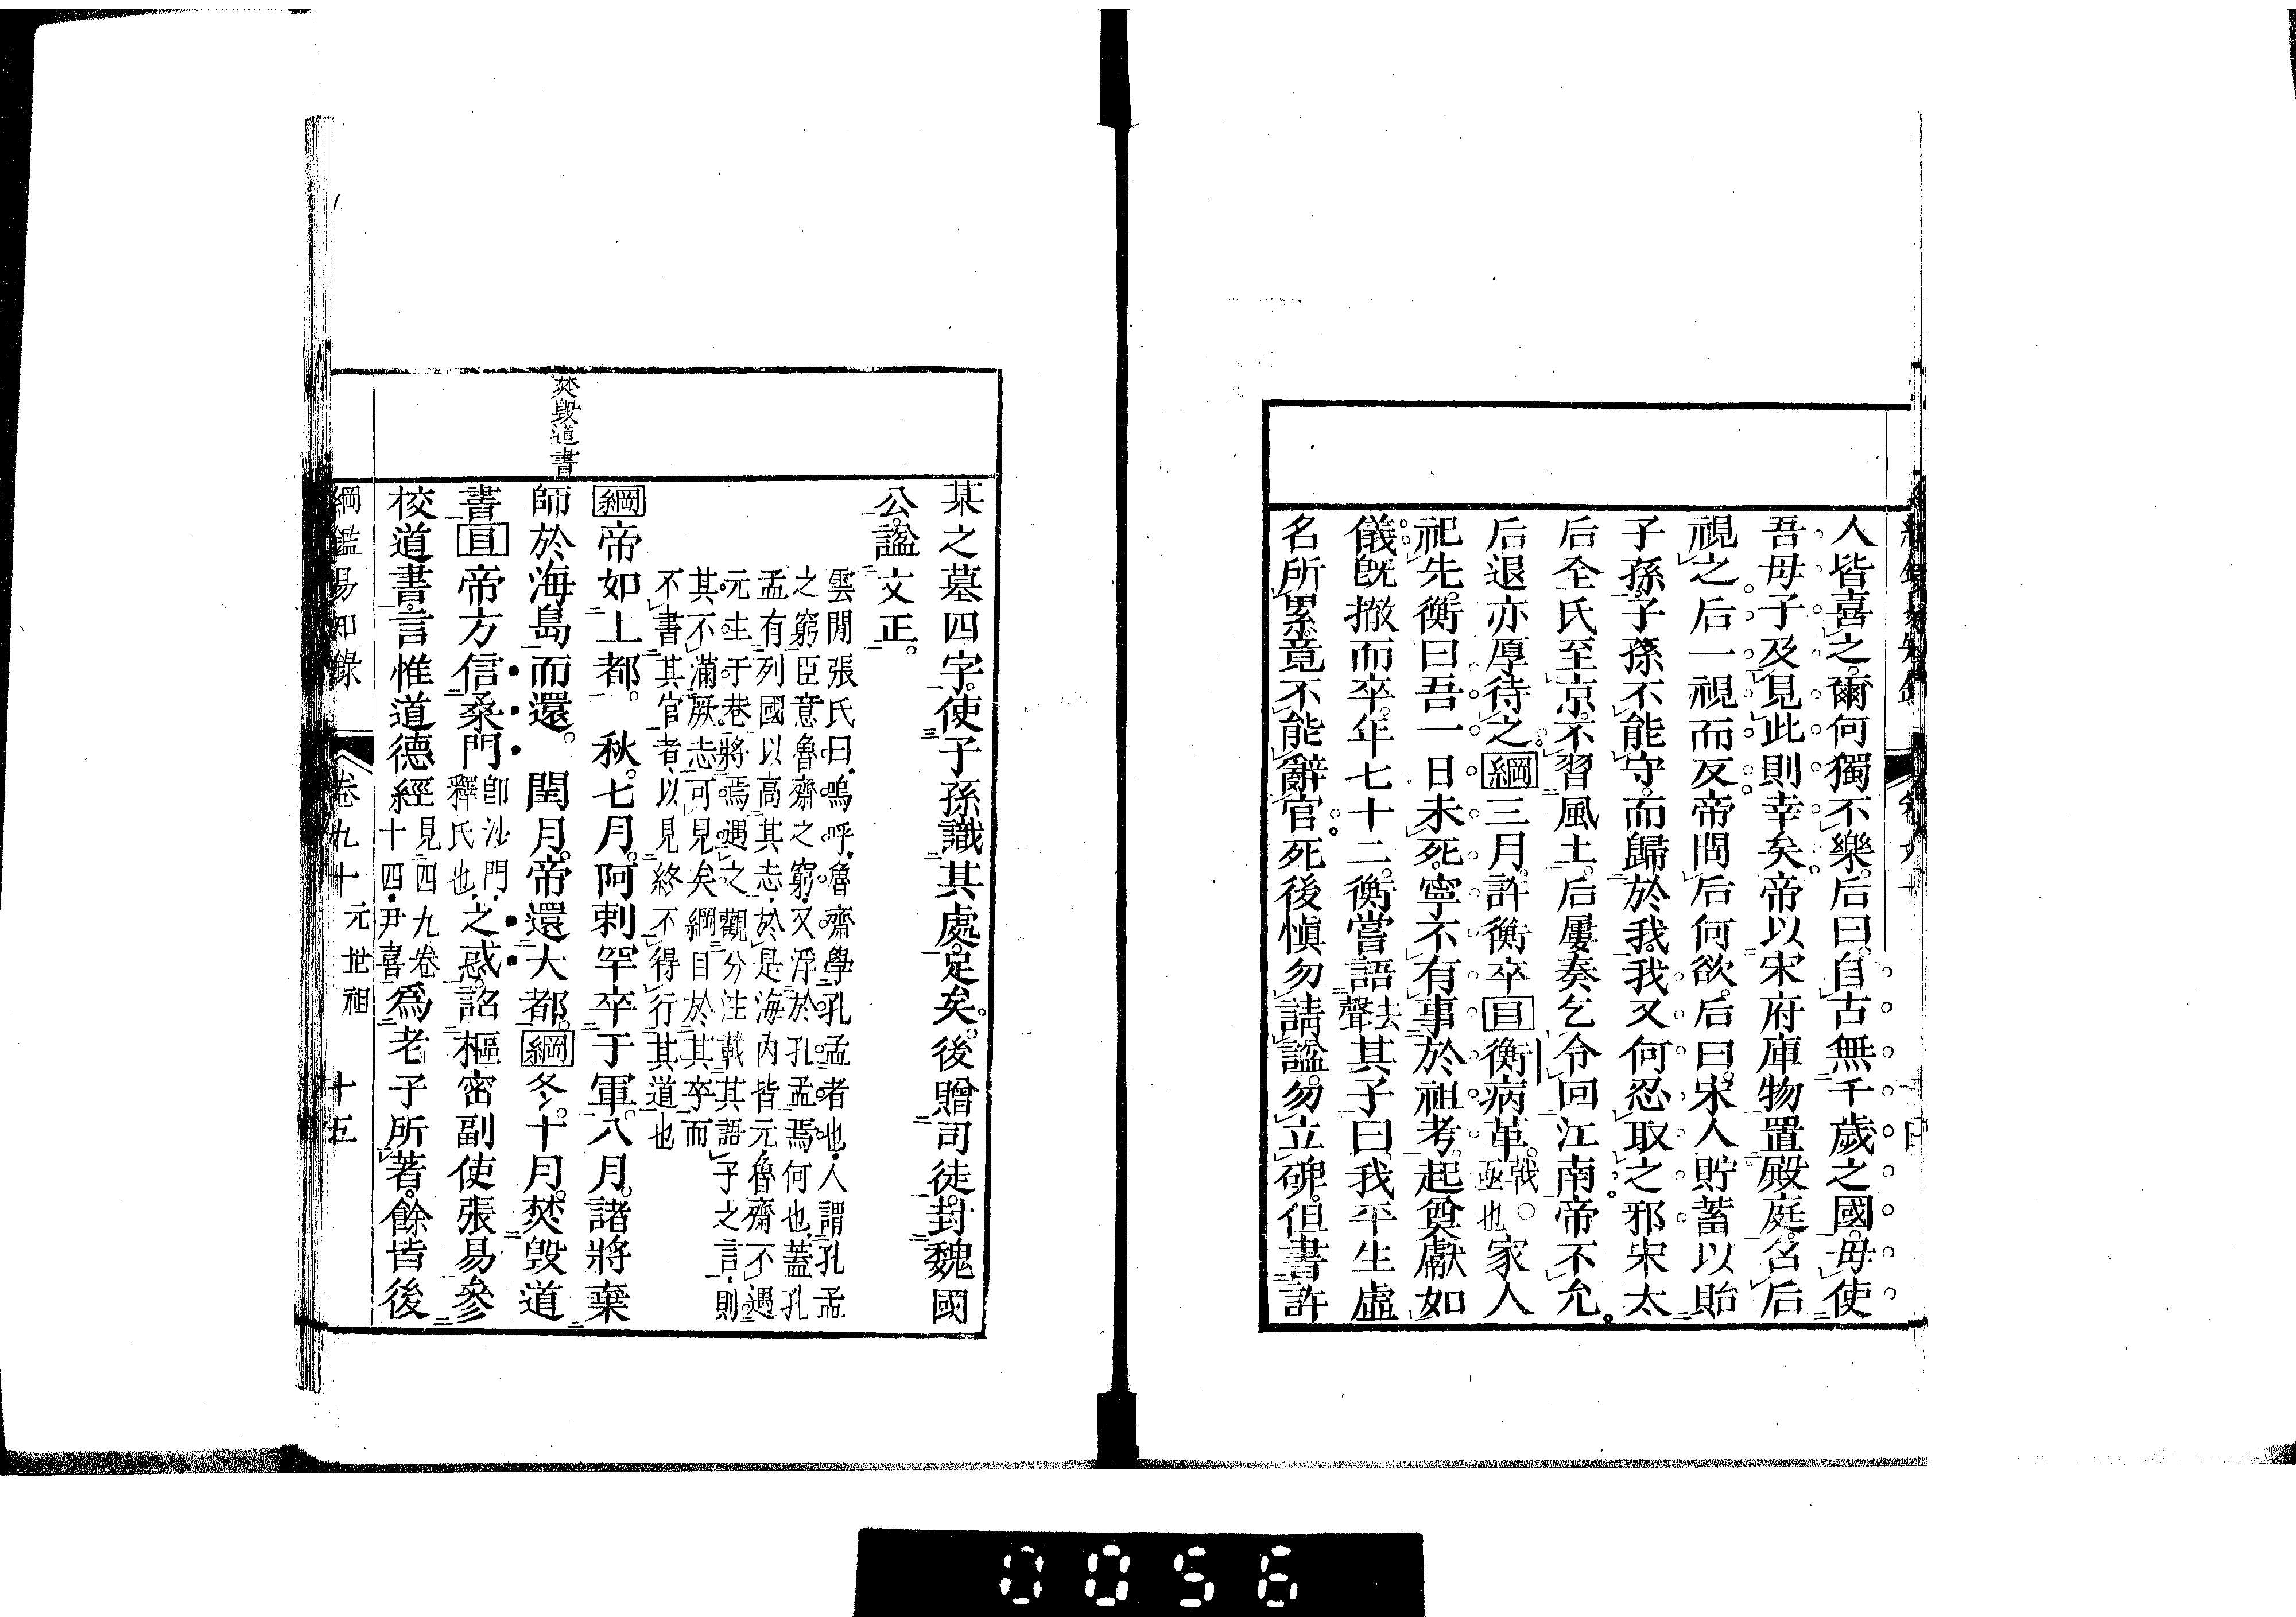 人皆喜之。爾何獨不樂。后曰。自古無千歲之國。毋使
吾母子及見此則幸矣。帝以宋府庫物置殿庭。召后
視之。后一視而反。帝問后何欲。后曰。宋人貯蓄以貽
子孫。子孫不能守。而歸於我。我又何忍取之邪。宋太
后全氏至京。不習風土。后屢奏乞令回江南。帝不允。
后退亦厚待之。綱三月。許衡卒。目衡病革。戟亟也。家人
祀先。衡曰。吾一日未死。寧不有事於祖考。起奠獻如
儀。既撤而卒。年七十二。衡嘗語去聲其子曰。我平生虛
名所累。竟不能辭官。死後慎勿請謚。勿立碑。但書許
某之墓四字。使子孫識其處。足矣。後贈司徒。封魏國
公。謚文正。
雲閒張氏曰。嗚呼。魯齋學孔孟者也。人謂孔孟
之窮。臣意魯齋之窮。又浮於孔孟焉。何也。蓋孔
孟有列國以高其志。於是海內皆元。魯齋一不遇
元。生于巷將焉遇之。觀分注載其語子之言。則
其不滿厥志可見矣。綱目於其卒。而
不書其官者。以見終不得行其道也
綱帝如上都。秋。七月。阿剌罕卒于軍。八月。諸將棄
師於海島而還。閏月。帝還大都。綱冬。十月。焚毀道
書。目帝方信桑門卽沙門。釋氏也。之惑。詔樞密副使張易參
校道書。言惟道德經見四九卷十四。尹喜為老子所著。餘皆後
焚毀道書
綱鑑易知錄 卷九十 元世祖 十五
0056